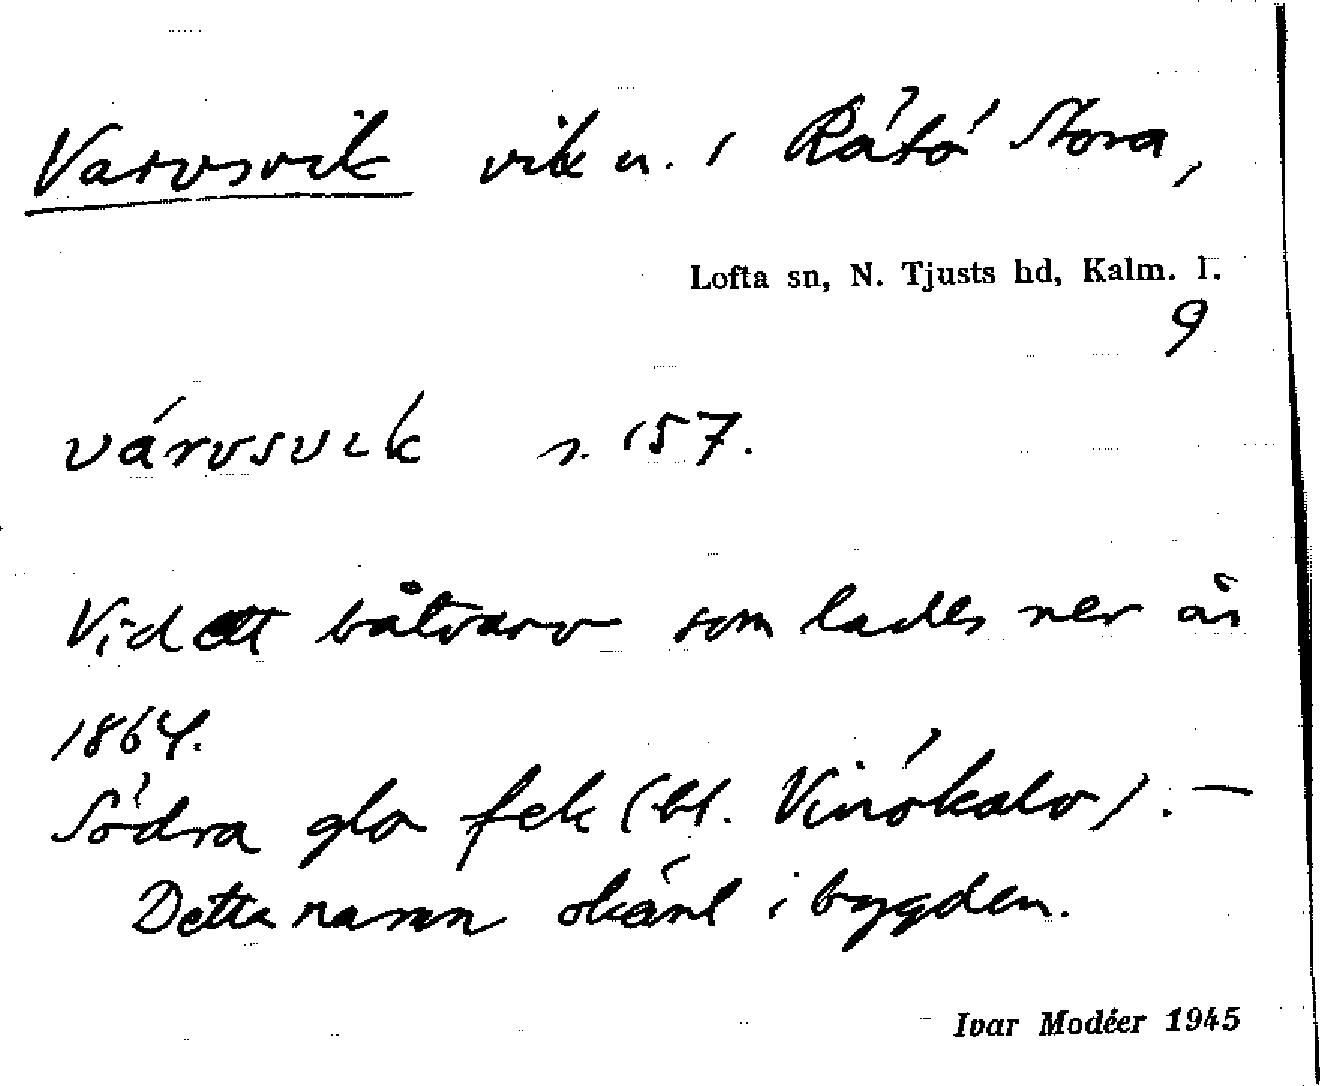 Varvsvik vik n. i Rätö Stora,
Lofta sn, N. Tjusts hd, Kalm. l.
9
várvsvik s. 157.
Vid ett båtvarv som lades ner år
1864.
Södra gla fek (bl. Vinökalv). —
Detta namn okänt i bygden.
Ivar Modéer 1945